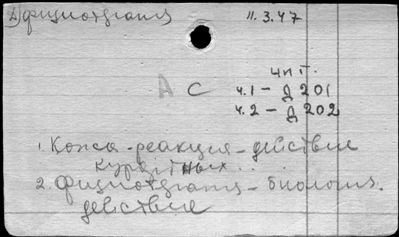 2) Физиотерапия 11.3.47
чит.
А С ч.1 – Д 201
ч.2 – Д 202
1. Кожа – реакция – действие
курортных ..
2. Физиотерапия – биология.
действие